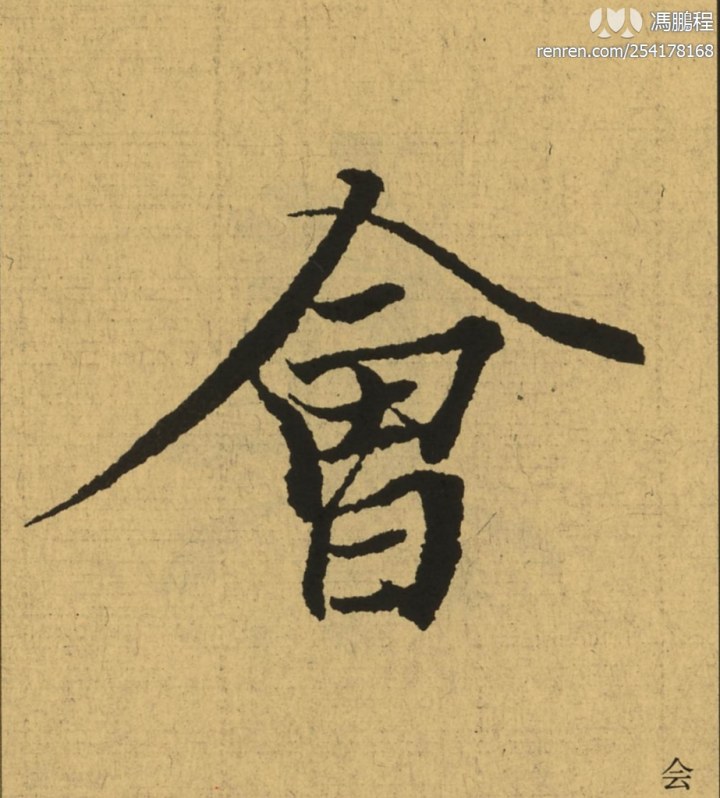 馮鵬程
renren.com/254178168
會
会